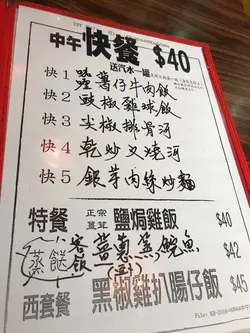 中午快餐 $40
送汽水一罐
快1 薯仔牛肉飯
快2 豉椒雞球飯
快3 尖椒排骨河
快4 乾炒叉燒河
快5 銀芽肉絲炒麵
特餐 正宗 鹽焗雞飯 $40
蒸餸 薑蔥蒸鯇魚 $42
西套餐 黑椒雞扒腸仔飯 $45